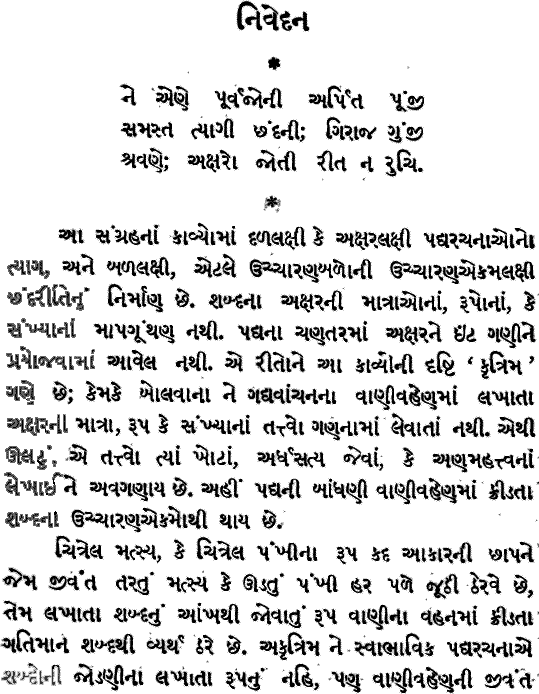 નિવેદન
*
ને એણે પૂર્વજોની અર્પિત પૂંજી
સમસ્ત ત્યાગી છંદની; ગિરાજ ગુંજી
શ્રવણે; અક્ષરો જોતી રીત ન રુચિ.
*
આ સંગ્રહનાં કાવ્યોમાં દળલક્ષી કે અક્ષરલક્ષી પદ્યરચનાઓનો
ત્યાગ, અને બળલક્ષી, એટલે ઉચ્ચારણબળોની ઉચ્ચારણએકમલક્ષી
છંદરીતિનું નિર્માણ છે. શબ્દના અક્ષરની માત્રાઓનાં, રૂપોનાં, કે
સંખ્યાનાં માપગૂંથણ નથી. પદ્યના ચણતરમાં અક્ષરને ઇંટ ગણીને
પ્રયોજવામાં આવેલ નથી. એ રીતોને આ કાવ્યોની દૃષ્ટિ ‘ કૃત્રિમ ’
ગણે છે; કેમકે બોલવાના ને ગદ્યવાંચનના વાણીવહેણમાં લખાતા
અક્ષરની માત્રા, રૂપ કે સંખ્યાનાં તત્ત્વો ગણનામાં લેવાતાં નથી. એથી
ઊલટું, એ તત્ત્વો ત્યાં ખોટાં, અર્ધસત્ય જેવાં, કે અણુમહત્ત્વનાં
લેખાઈને અવગણાય છે. અહીં પદ્યની બાંધણી વાણીવહેણમાં ક્રીડતા
શબ્દના ઉચ્ચારણએકમોથી થાય છે.
ચિત્રેલ મત્સ્ય, કે ચિત્રેલ પંખીના રૂપ કદ આકારની છાપને
જેમ જીવંત તરતું મત્સ્ય કે ઊડતું પંખી હર પળે જૂઠી ઠેરવે છે,
તેમ લખાતા શબ્દનું આંખથી જોવાતું રૂપ વાણીના વહનમાં ક્રીડતા
ગતિમાન શબ્દથી વ્યર્થ ઠરે છે. અકૃત્રિમ ને સ્વાભાવિક પદ્યરચનાએ
શબ્દોની જોડણીના લખાતા રૂપનું નહિ, પણ વાણીવહેણની જીવંત